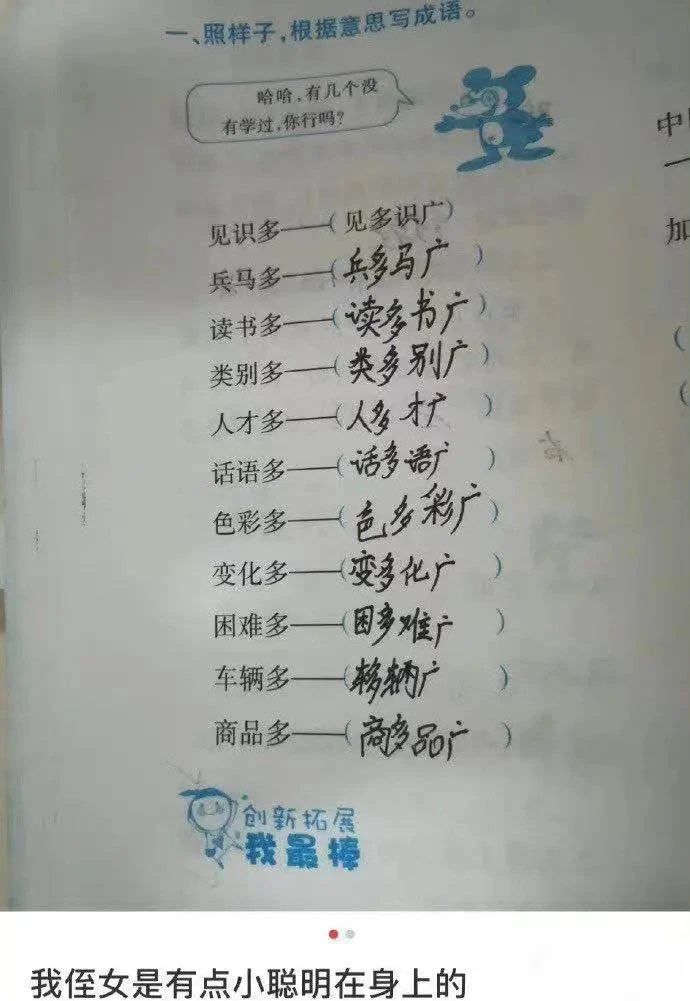 一、照样子，根据意思写成语。
哈哈，有几个没
有学过，你行吗？
见识多——（见多识广）
兵马多——（兵多马广）
读书多——（读多书广）
类别多——（类多别广）
人才多——（人多才广）
话语多——（话多语广）
色彩多——（色多彩广）
变化多——（变多化广）
困难多——（困多难广）
车辆多——（车多辆广）
商品多——（商多品广）
创新拓展
我最棒
中
加
我侄女是有点小聪明在身上的